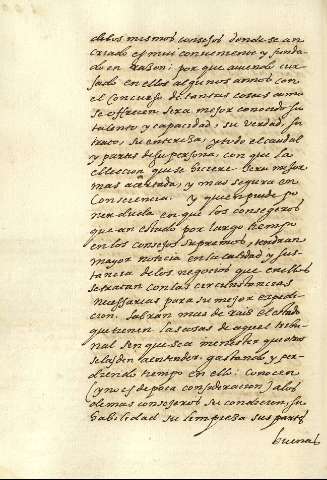 delos mismos consejos donde se an
criado es mui conveniente y funda
do en razon: por que aviendo cur
sado en ellos algunos annos con
el concurso de tantas cosas como
se offrecen sera mejor conocido su
talento y capacidad, su verdad, su
trato, su entereza, y todo el caudal
y partes de su persona, con que la
elleccion que se hiciere sera mejor
mas acertada, y mas segura en
consciencia: y quien puede po
ner duda en que los consegeros
que an estado por largo tiempo
en los consejos supremos, tendran
mayor noticia en la calidad y sus
tancia delos negocios que en ellos
se tratan con las circunstancias
necessarias para su mejor expedi
cion. sabran mas de raiz el estado
que tienen las cosas de aquel tribu
nal sin que sea menester que otros
se las den a entender, gastando y per
diendo tiempo en ello: conocen
(y no es de poca consideracion) alos
demas consejeros su condicion, su
habilidad su limpieza sus partes
buenas